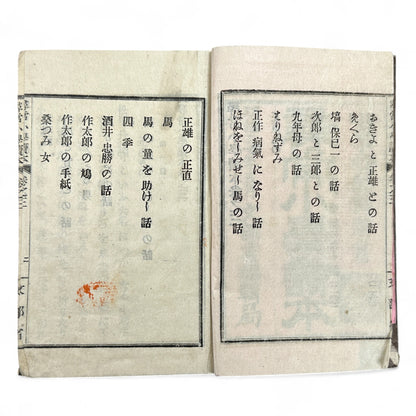 おきよ と 正雄 と の 話
さくら
塙 保巳一 の 話
次郎 と 三郎 と の 話
九年母 の 話
きりぎりす
正作 病氣 に なりし 話
ほねをしみせし 馬 の 話
正雄 の 正直
馬
馬 の 童 を 助けし 話
四季
酒井 忠勝 の 話
作太郎 の 鳩
作太郎 の 手紙
桑つみ 女
二
文部省